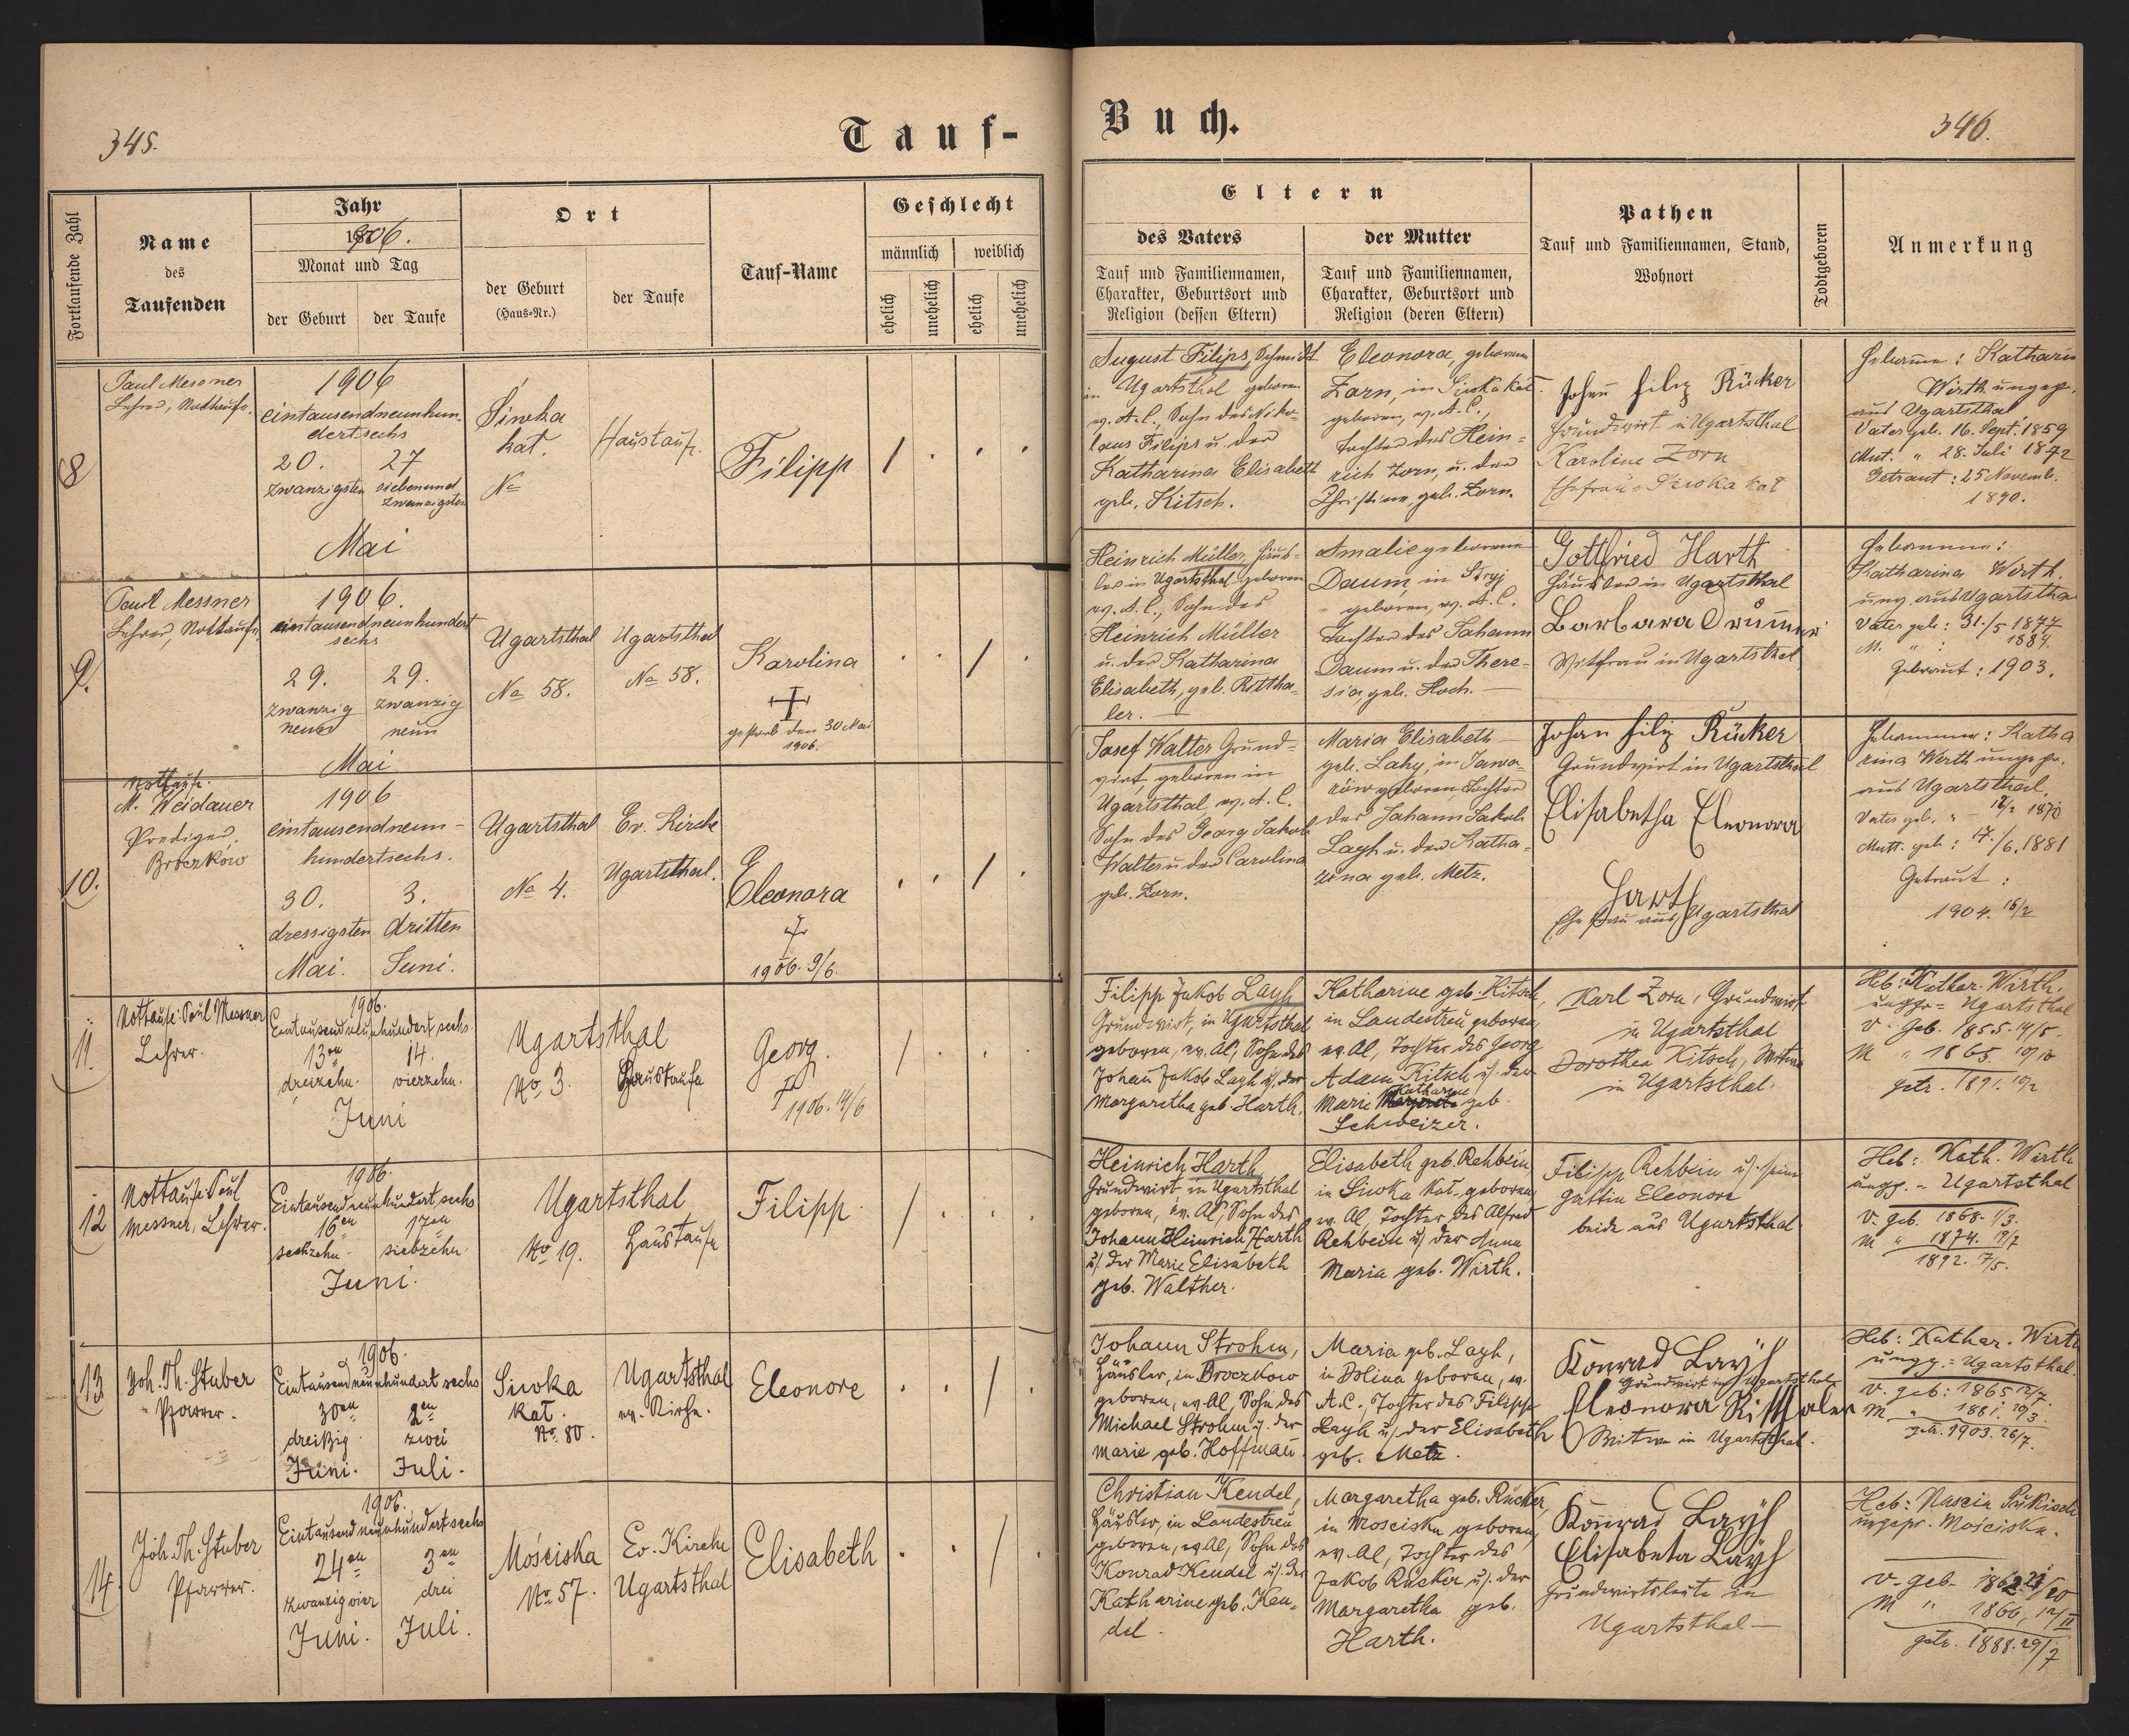 345.
Tauf-
Fortlaufende Zahl
Name
des
Taufenden
Jahr
1906.
Monat und Tag
der Geburt
der Taufe
Ort
der Geburt
(Haus-Nr.)
der Taufe
Tauf-Name
Geschlecht
männlich
weiblich
ehelich
unehelich
ehelich
unehelich
8
Paul Messner
Lehrer, Nottaufe.
1906
eintausendneunhun-
dertsechs
20.
27
zwanzigsten
siebenund
zwanzigsten
Mai
Siwka
kat.
No
Haustauf.
Filipp
9.
Paul Messner
Lehrer, Nottaufe
1906.
eintausendneunhundert
sechs
29.
29.
zwanzig
neun
zwanzig
neun
Mai
Ugartsthal
No 58.
Ugartsthal
No 58.
Karolina
gestorb den 30 Mai
1906.
10.
Nottaufe.
M. Weidauer
Prediger,
Broczkow
1906
eintausendneun-
hundertsechs.
30.
3.
dressigsten
dritten
Mai.
Juni.
Ugartsthal
No 4.
Ev. Kirche
Ugartsthal.
Eleonora
1906. 9/6.
11.
Nottaufe: Paul Messner
Lehrer.
1906.
Eintausendneunhundert sechs
13en
14.
dreizehn.
vierzehn.
Juni
Ugartsthal
No 3.
Haustaufe
Georg.
1906. 14/6
12
Nottaufe: Paul
Messner, Lehrer.
1906.
Eintausendneunhundert sechs
16en
17en
sechzehn
siebzehn
Juni.
Ugartsthal
No 19.
Haustaufe
Filipp
13
Joh. Th. Stuber
Pfarrer.
1906.
Eintausendneunhundert sechs
30en
2en
dreißig
zwei
Juni.
Juli.
Siwka
kat.
No 80.
Ugartsthal
ev. Kirche.
Eleonore
14.
Joh. Th. Stuber
Pfarrer.
1906.
Eintausend neunhundert sechs
24en
3en
zwanzigvier
drei
Juni.
Juli.
Mościska
No 57.
Ev. Kirche
Ugartsthal
Elisabeth
Buch.
346.
Eltern
des Vaters
Tauf und Familiennamen,
Charakter, Geburtsort und
Religion (dessen Eltern)
der Mutter
Tauf und Familiennamen,
Charakter, Geburtsort und
Religion (deren Eltern)
Pathen
Tauf und Familiennamen, Stand,
Wohnort
Todtgeboren
Anmerkung
August Filips, Schmidt
in Ugartsthal geboren
ev. A. C., Sohn des Niko-
laus Filips u. der
Katharina Elisabeth
geb. Kitsch.
Eleonora, geborene
Zorn, in Siwka kat.
geboren, ev. A. C.,
Tochter des Hein-
rich Zorn, u. der
Christine, geb. Zorn.
Johan Filip Rücker
Grundwirt in Ugartsthal
Karoline Zorn
Ehefrau Siwka kat
Hebamme: Katharin
Wirth ungepr.
aus Ugartsthal
Vater geb. 16. Sept. 1859
Mut. " 28. Juli 1872
Getraut: 25 Novemb.
1890.
Heinrich Müller, Häus-
ler in Ugartsthal geboren
ev. A. C., Sohn des
Heinrich Müller
u. der Katharina
Elisabeth, geb. Rittha-
ler.
Amalie geborene
Daum, in Stryj
geboren, ev. A. C.
Tochter des Johann
Daum u. der There-
sia, geb. Hoch.
Gottfried Harth
Häusler in Ugartsthal
Barbara Drummer
Witfrau in Ugartsthal
Hebamme:
Katharina Wirth.
ung. aus Ugartstha
Vater geb: 31./5 1877
M. " : 1884.
Getraut: 1903.
Josef Walter Grund-
wirt, geboren in
Ugartsthal, ev. A. C.
Sohn des Georg Jakob
Walter u. der Carolina
geb. Zorn.
Maria Elisabeth
geb. Lahy, in Jawo-
rów geboren, Tochter
des Johann Jakob
Layh u. der Katha-
rina geb. Metz.
Johan Filip Rücker
Grundwirt in Ugartsthal
Elisabetha Eleonora
Harth
Ehefrau aus Ugartsthal
Hebamme: Katha
rina Werth ungepr.
aus Ugartsthal.
Mutt. geb: 17./6. 1881
Getraut:
1904. 16/2
Filipp Jakob Layh
Grundwirt, in Ugartsthal
geboren, ev. Al, Sohn des
Johan Jakob Layh u. der
Margaretha geb Harth.
Katharine geb. Kitsch,
in Landestreu geboren
ev. Al, Tochter des Georg
Adam Kitsch u. der
Katharine
Marie geb.
Schweizer.
Karl Zorn, Grundwirt
in Ugartsthal
Dorothea Kitsch, Witwe
in Ugartsthal.
Heb: Kathar. Wirth.
unggr= Ugartsthal
V. geb. 1855. 14/5
M " 1865 10/10
getr. 1891. 10/2
Heinrich Harth
Grundwirt in Ugartsthal
geboren, ev. Al, Sohn des
Johann Heinrich Harth
u. der Marie Elisabeth
geb. Walther.
Elisabeth geb. Rehbein
in Siwka Kat. geboren,
ev. Al, Tochter des Alfred
Rehbein u. der Anna
Maria geb. Wirth.
Filipp Rehbein u. seine
Gattin Eleonore
beide aus Ugartsthal
Heb: Kath. Wirth
ungg. = Ugartsthal
V. geb. 1868. 1/3.
M " 1874. 19/7
1892. 17/5.
Johann Strohm,
Häusler, in Broczkow
geboren, ev. Al, Sohn des
Michael Strohm u. der
Marie geb. Hoffman
Maria geb. Layh,
in Dolina geboren, ev.
A. C. Tochter des Filipp
Layh u. der Elisabeth
geb. Metz.
Konrad Layh
Grundwirt in Ugartsthal
Eleonora Ritthaler
Witwe in Ugartsthal.
Heb: Kathar. Wirth
ungg.= Ugartsthal.
V. geb: 1865 12/7.
M " 1881. 19/3.
getr. 1903. 26/7.
Christian Kendel,
Häusler, in Landestreu
geboren, ev Al, Sohn des
Konrad Kendel u. der
Katharine geb. Ken-
del.
Margaretha geb. Rücker,
in Mosciska geboren,
ev. Al, Tochter des
Jakob Rücker u. der
Margaretha geb.
Harth.
Konrad Layh
Elisabeta Layh
Grundwirtsleute in
Ugartsthal
ungepr. Mościska.
V. geb.
M " 1866, 12/II
getr. 1888. 29/7